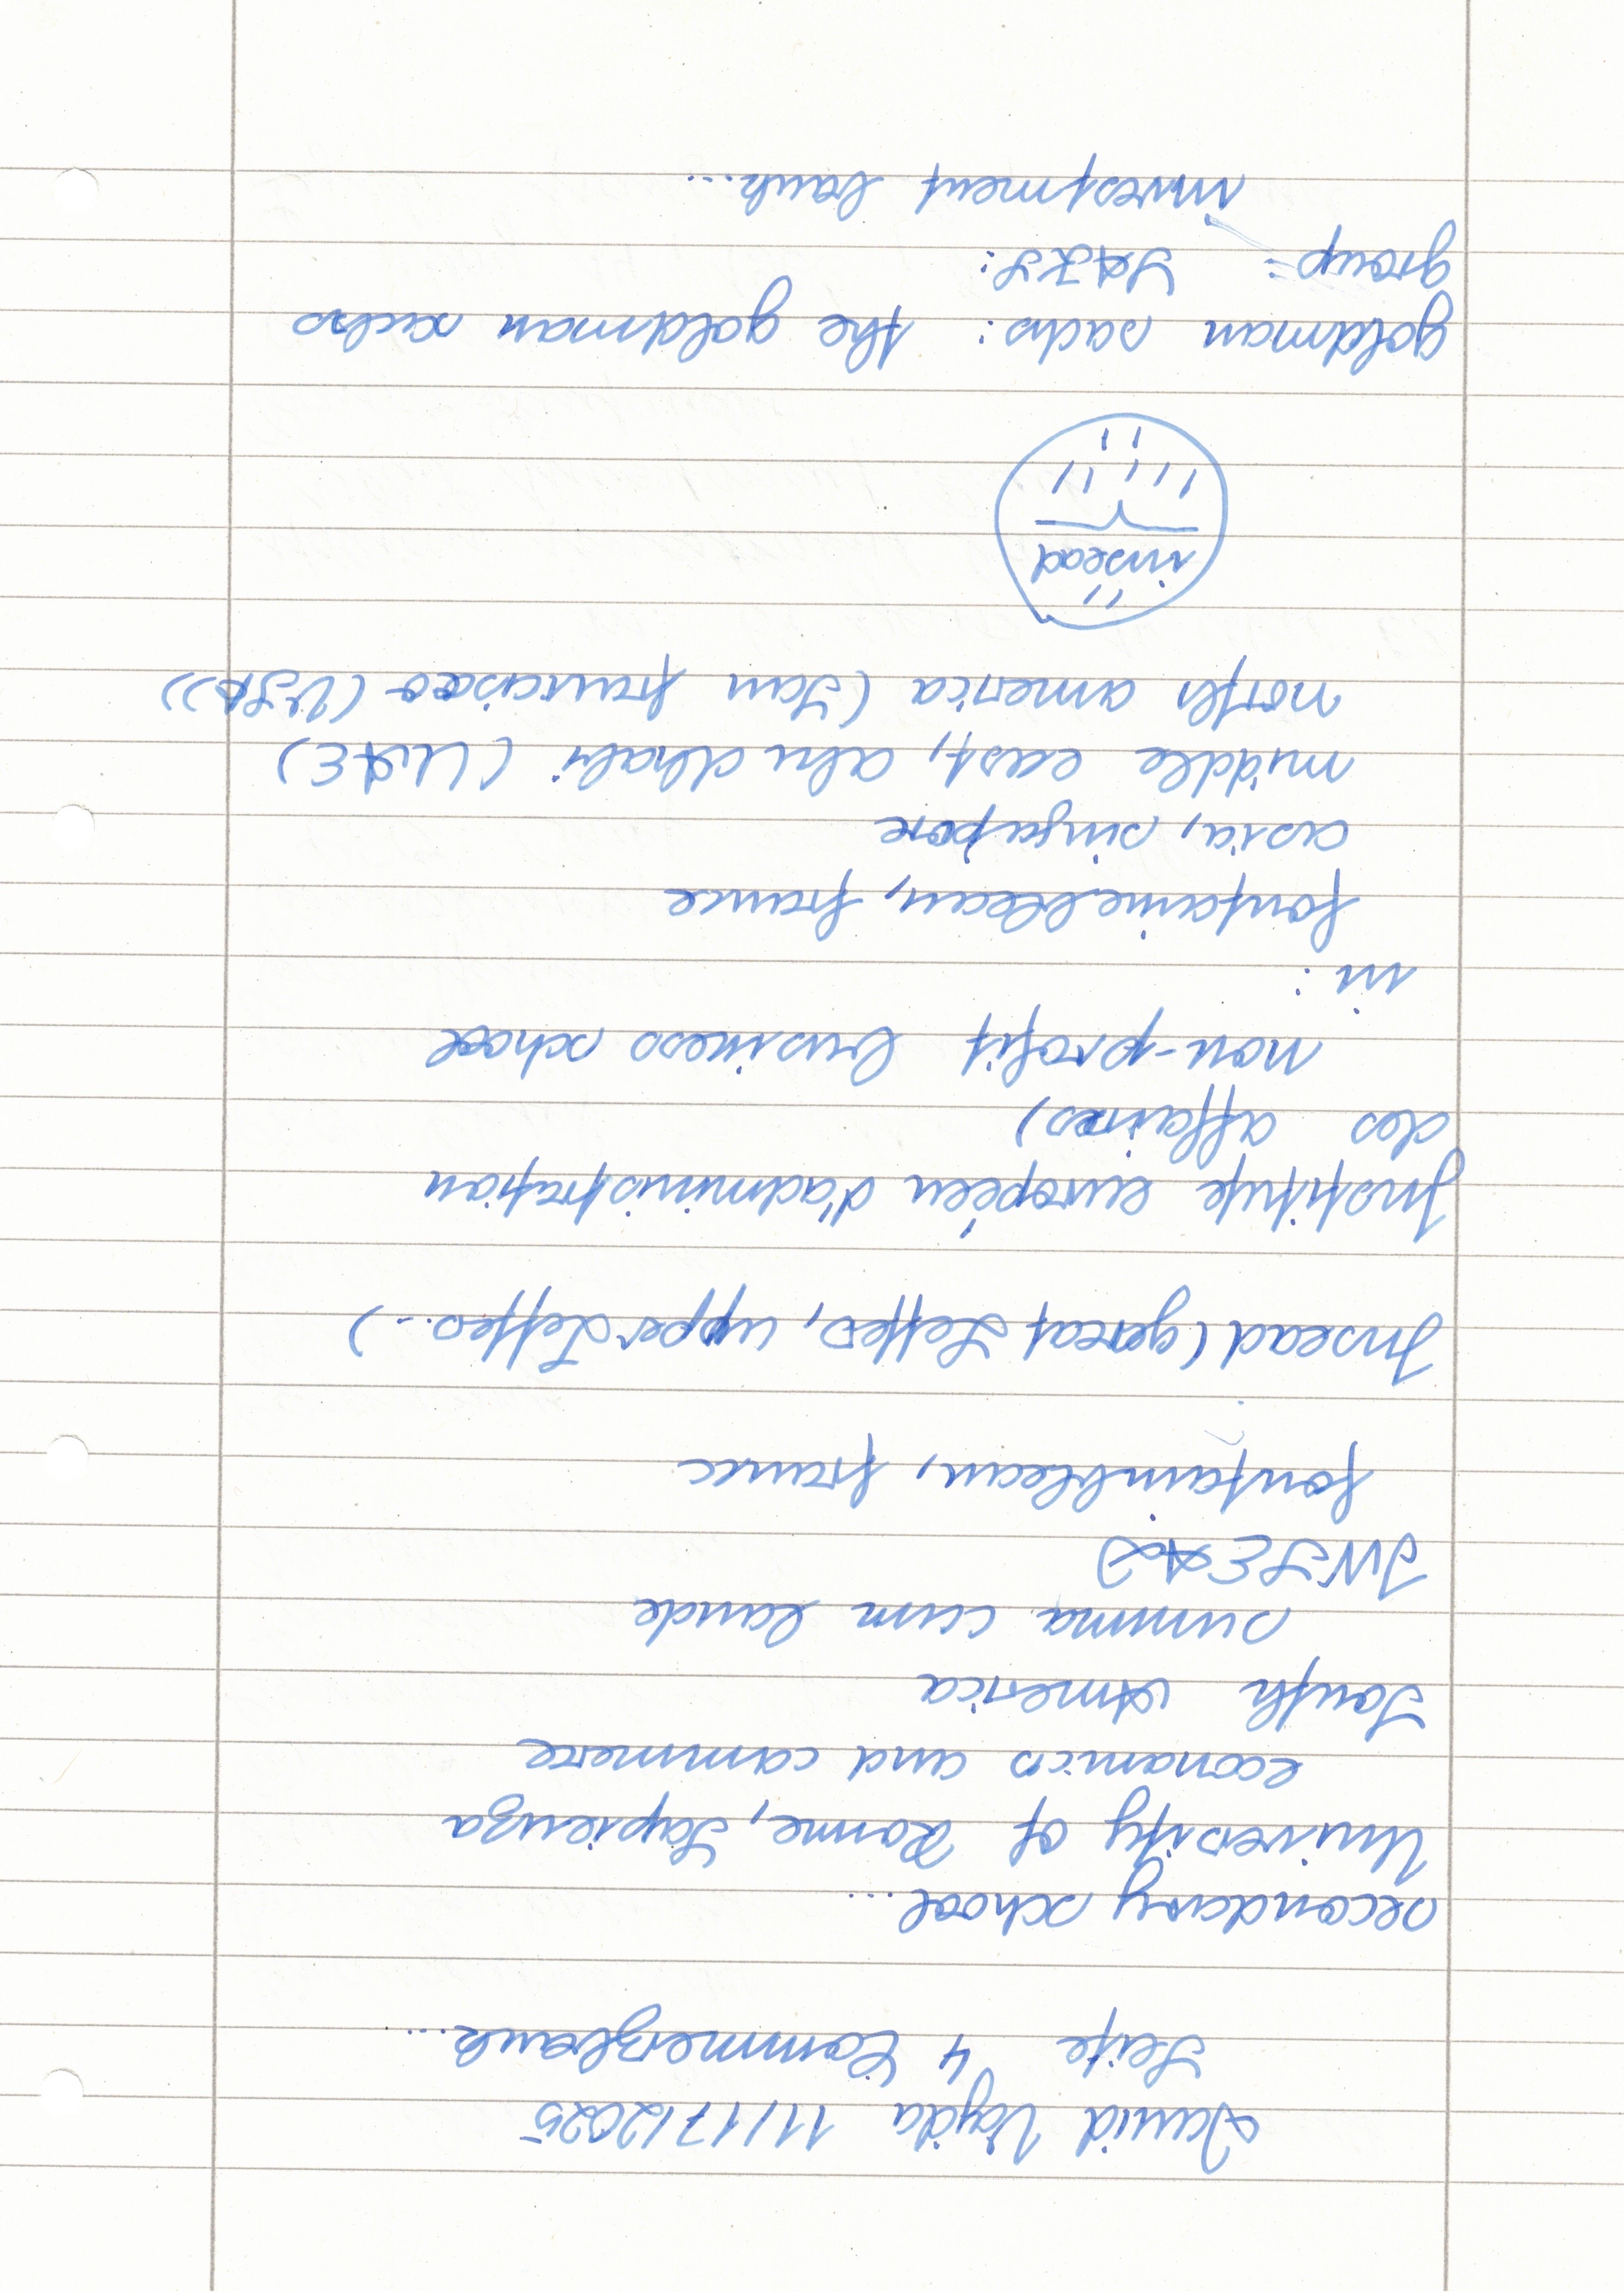 David Vajda 11/17/2025
Seite 4 Commerzbank...
secondary school...
University of Rome, Sapienza
economics and commerce
South America
summa cum laude
INSEAD
fontainbleau, france
Insead (gereat Letter, upper Letter...)
Institute européen d'administration
des affaires)
non-profit business school
in:
fontainebleau, france
asia, singapore
middle east, abu dhabi (UAE)
north america (San francisco (USA))
insead
goldman sachs: the goldman sachs
group =
investment bank...